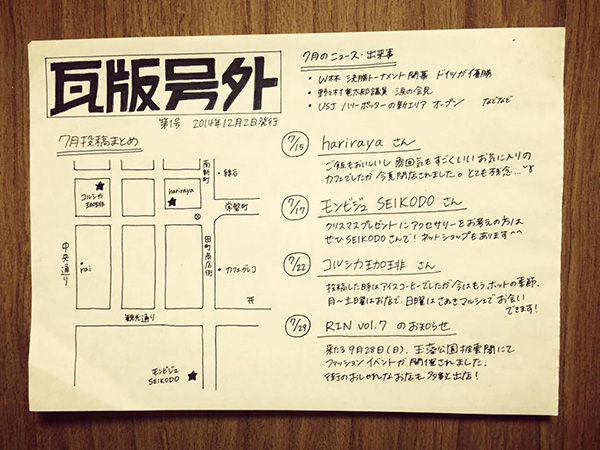 瓦版号外
第1号 2014年12月2日発行
7月のニュース・出来事
・W杯 決勝トーナメント開幕 ドイツが優勝
・野々村竜太郎議員 涙の会見
・USJ ハリーポッターの新エリア オープン などなど
7月投稿まとめ
南新町
緑谷
コルシカ珈琲
hariraya
栄町
中央通り
rai
田町商店街
カフェグレコ
観光通り
モンビジュ
SEIKODO
7/15 hariraya さん
ご飯もおいしいし 雰囲気もすごくいいお気に入りの
カフェでしたが今夏閉店されました。とても残念…
7/17 モンビジュ SEIKODO さん
クリスマスプレゼントにアクセサリーをお考えの方は
ぜひSEIKODOさんで!ネットショップもあります^^
7/22 コルシカ珈琲 さん
投稿した時はアイスコーヒーでしたが今はもうホットの季節、
月〜土曜はお店で、日曜はさぬきマルシェでお会い
できます!
7/29 RIN vol.7 のお知らせ
来たる9月28日(日)、玉藻公園披雲閣にて
ファッションイベントが開催されました。
街のおしゃれなお店も多数出店!